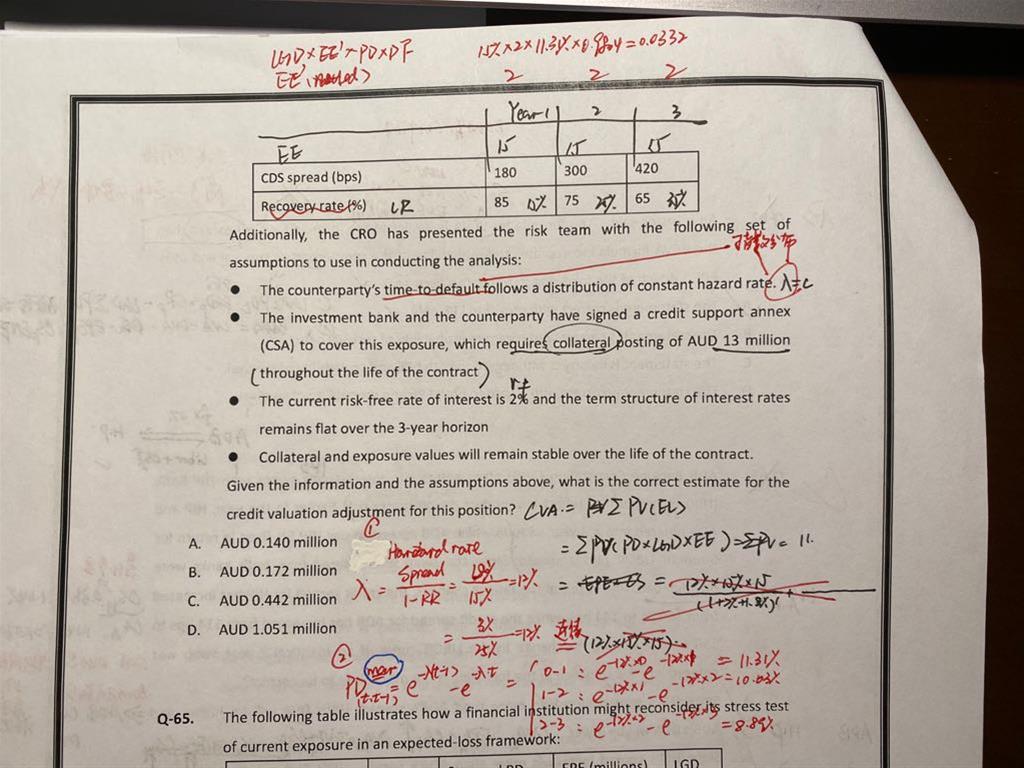 LGD×EE'×PD×DF 15%×2×11.31%×0.9804=0.0332
EE' (netted) 2 2 2
Year 1 2 3
EE 15 15 15
CDS spread (bps) 180 300 420
Recovery rate (%) LR 85 15% 75 25% 65 35%
Additionally, the CRO has presented the risk team with the following set of
assumptions to use in conducting the analysis:
● The counterparty's time-to-default follows a distribution of constant hazard rate. λ=c
● The investment bank and the counterparty have signed a credit support annex
(CSA) to cover this exposure, which requires collateral posting of AUD 13 million
(throughout the life of the contract)
rf
● The current risk-free rate of interest is 2% and the term structure of interest rates
remains flat over the 3-year horizon
● Collateral and exposure values will remain stable over the life of the contract.
Given the information and the assumptions above, what is the correct estimate for the
credit valuation adjustment for this position? CVA = Σ PV(EL)
①
A. AUD 0.140 million
Harzard rate
= ΣPV(PD×LGD×EE) =ΣPV = 11.
B. AUD 0.172 million
λ = Spread / 1-RR = 1.8% / 15% = 12%
= 12%×15%×15
C. AUD 0.442 million
D. AUD 1.051 million
= 3% / 25% = 12% 连续 (12%×15%×15)
②
PD mar (t,t-1) = e -λ(t-1) - e -λt = 0-1 : e -12%×0 - e -12%×1 = 11.31%
1-2 : e -12%×1 - e -12%×2 = 10.03%
2-3 : e -12%×2 - e -12%×3 = 8.89%
Q-65. The following table illustrates how a financial institution might reconsider its stress test
of current exposure in an expected-loss framework:
EPE (millions) LGD